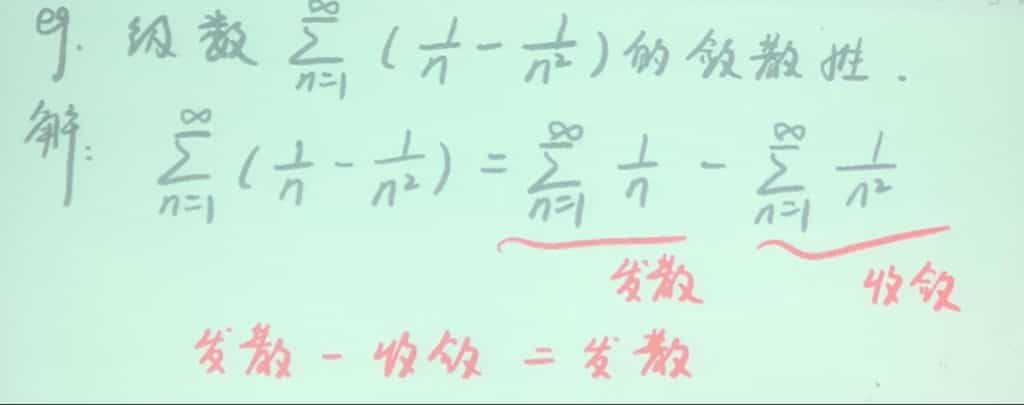 eg. 级数 ∑_{n=1}^{∞} (1/n - 1/n²) 的敛散性.
解: ∑_{n=1}^{∞} (1/n - 1/n²) = ∑_{n=1}^{∞} 1/n - ∑_{n=1}^{∞} 1/n²
发散 收敛
发散 - 收敛 = 发散